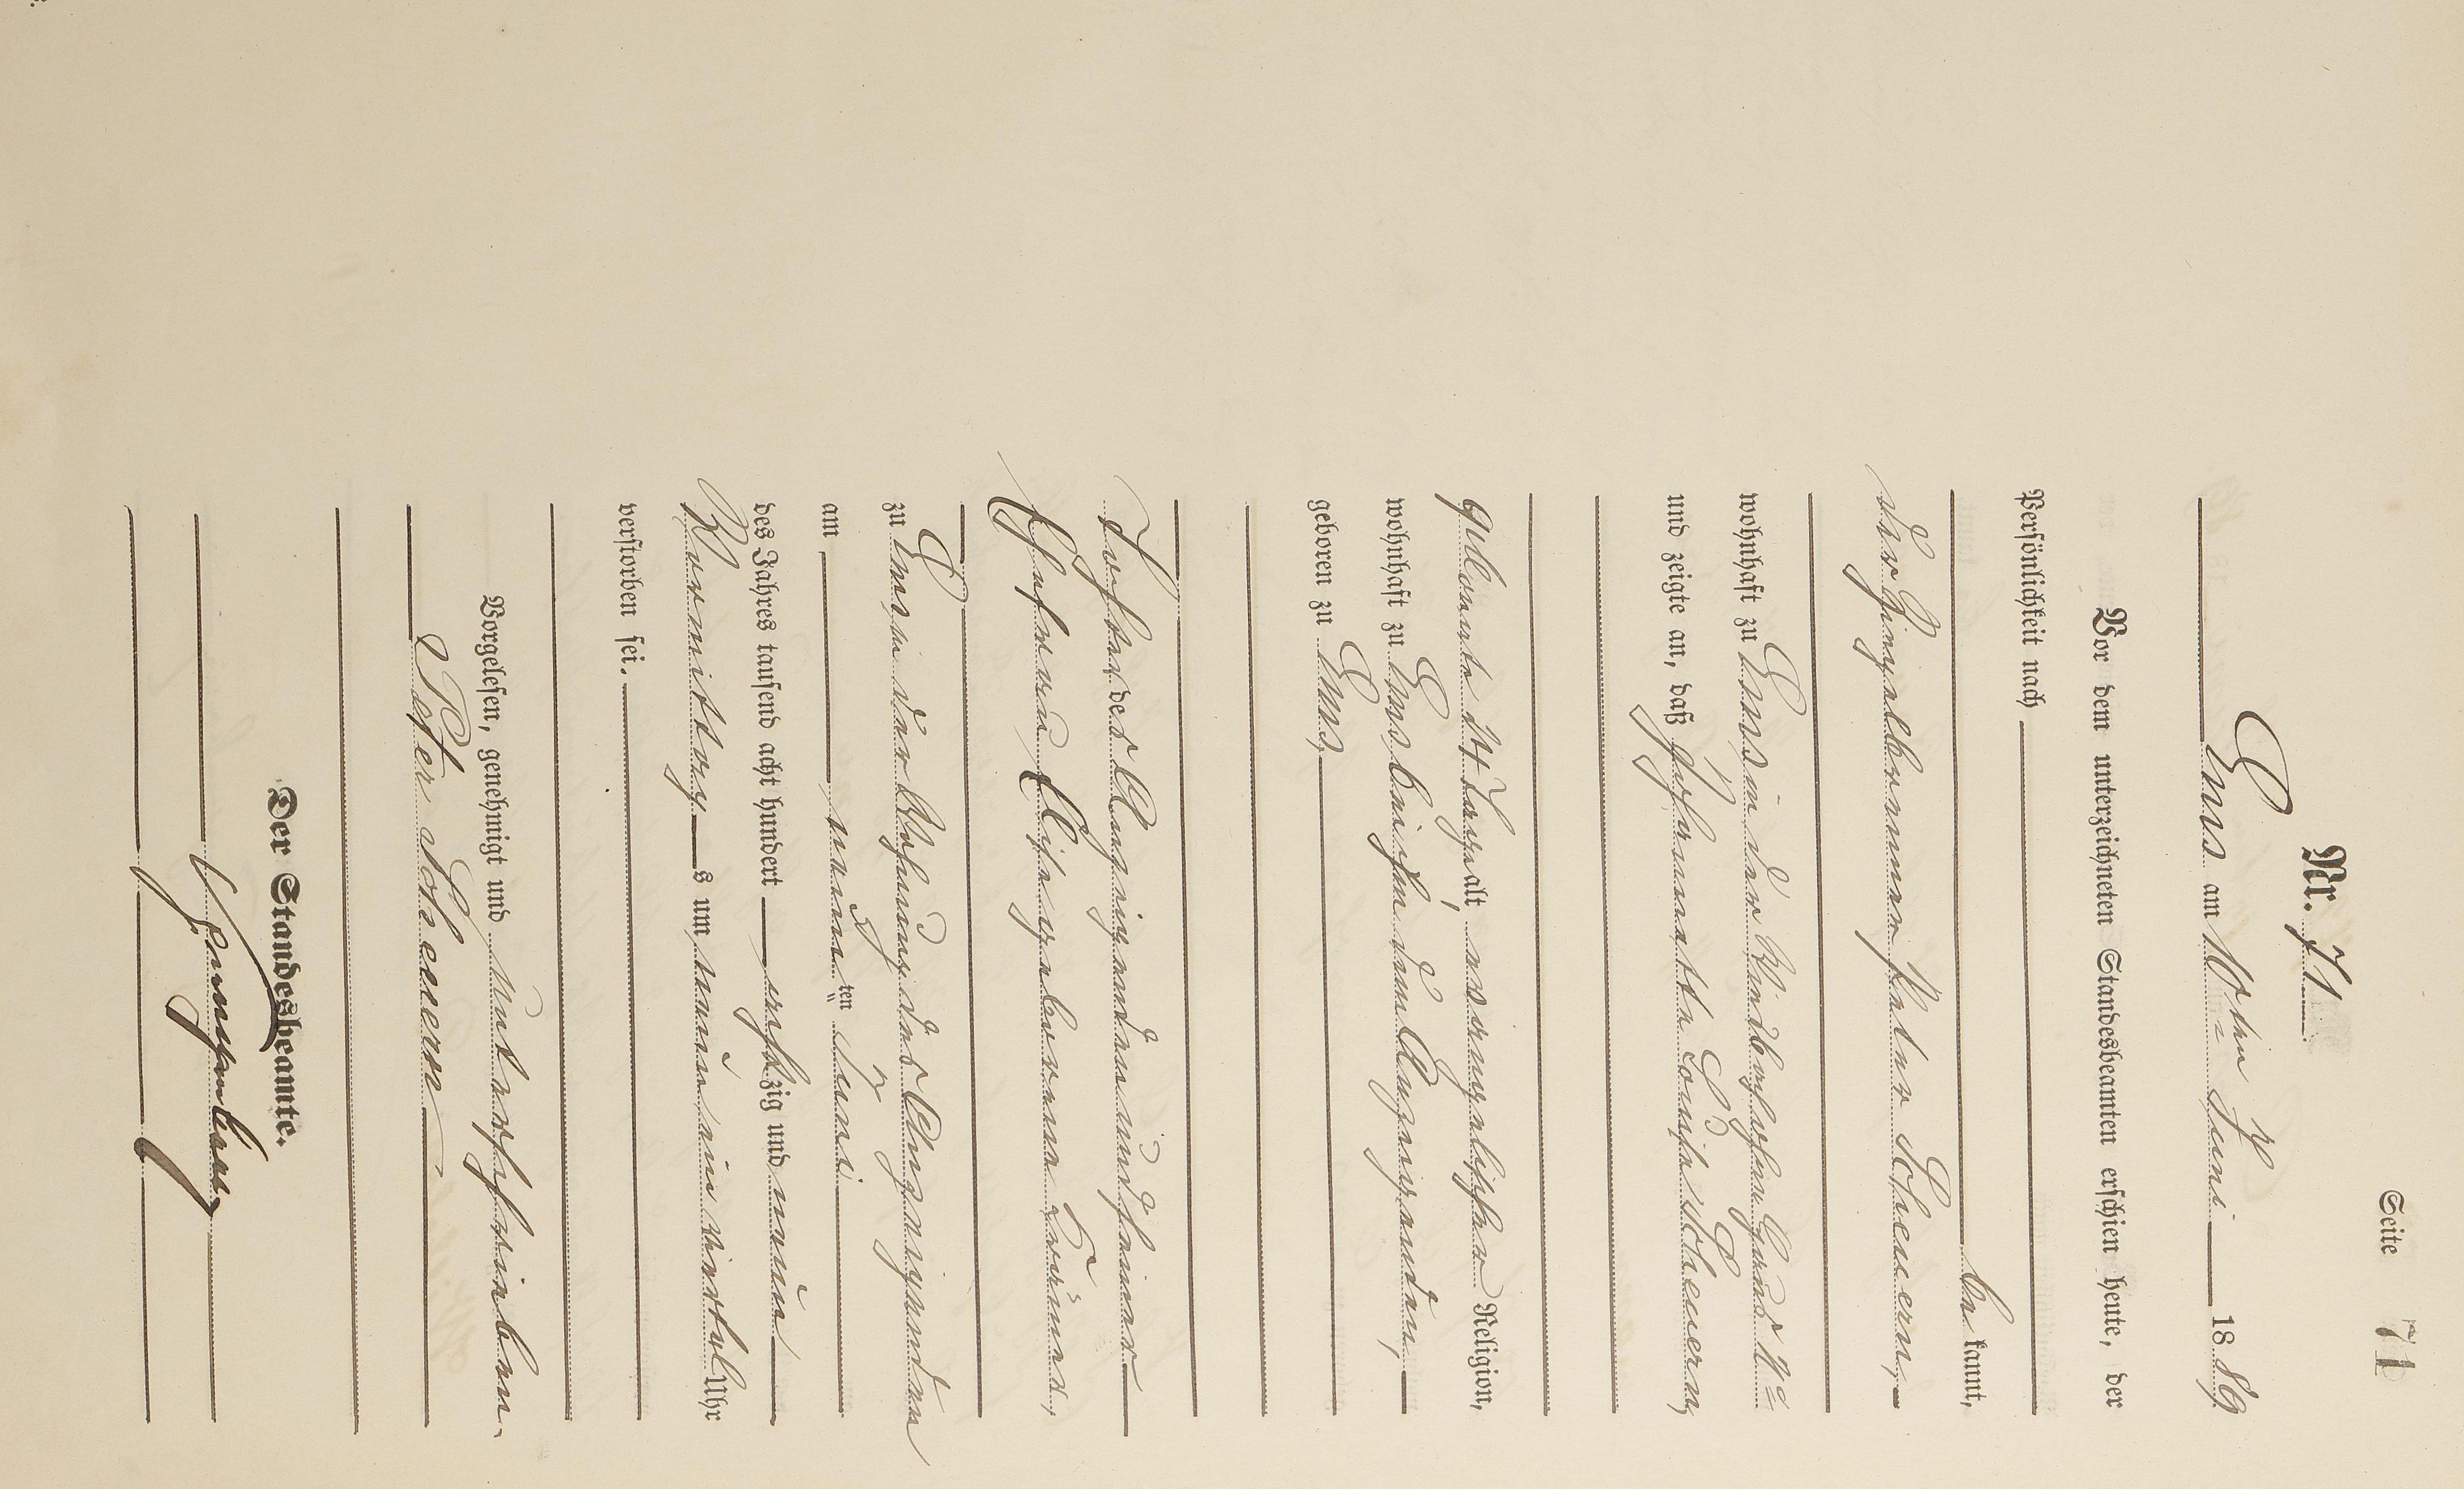 Seite 71
Nr. 71
Ems am 10ten Juni 1889
Vor dem unterzeichneten Standesbeamten erschien heute, der
Persönlichkeit nach
bekannt,
der Ziegelbrenner Peter Scheuern,
wohnhaft zu Ems in der
und zeigte an, daß Johannette Louise Scheuern,
geborente 14 Tage alt, evangelischer Religion,
wohnhaft zu Ems bei ihm dem Anzeigenden,
geboren zu Ems,
Tochter des Anzeigenden und seiner
Ehefrau Elise geborene
zu Ems in der Wohnung des Anzeigenden
am neunten Juni
des Jahres tausend acht hundert achtzig und neun
Vormittags um neun ein viertel Uhr
verstorben sei.
Vorgelesen, genehmigt und unterschrieben
Peter Scheuern
Der Standesbeamte.